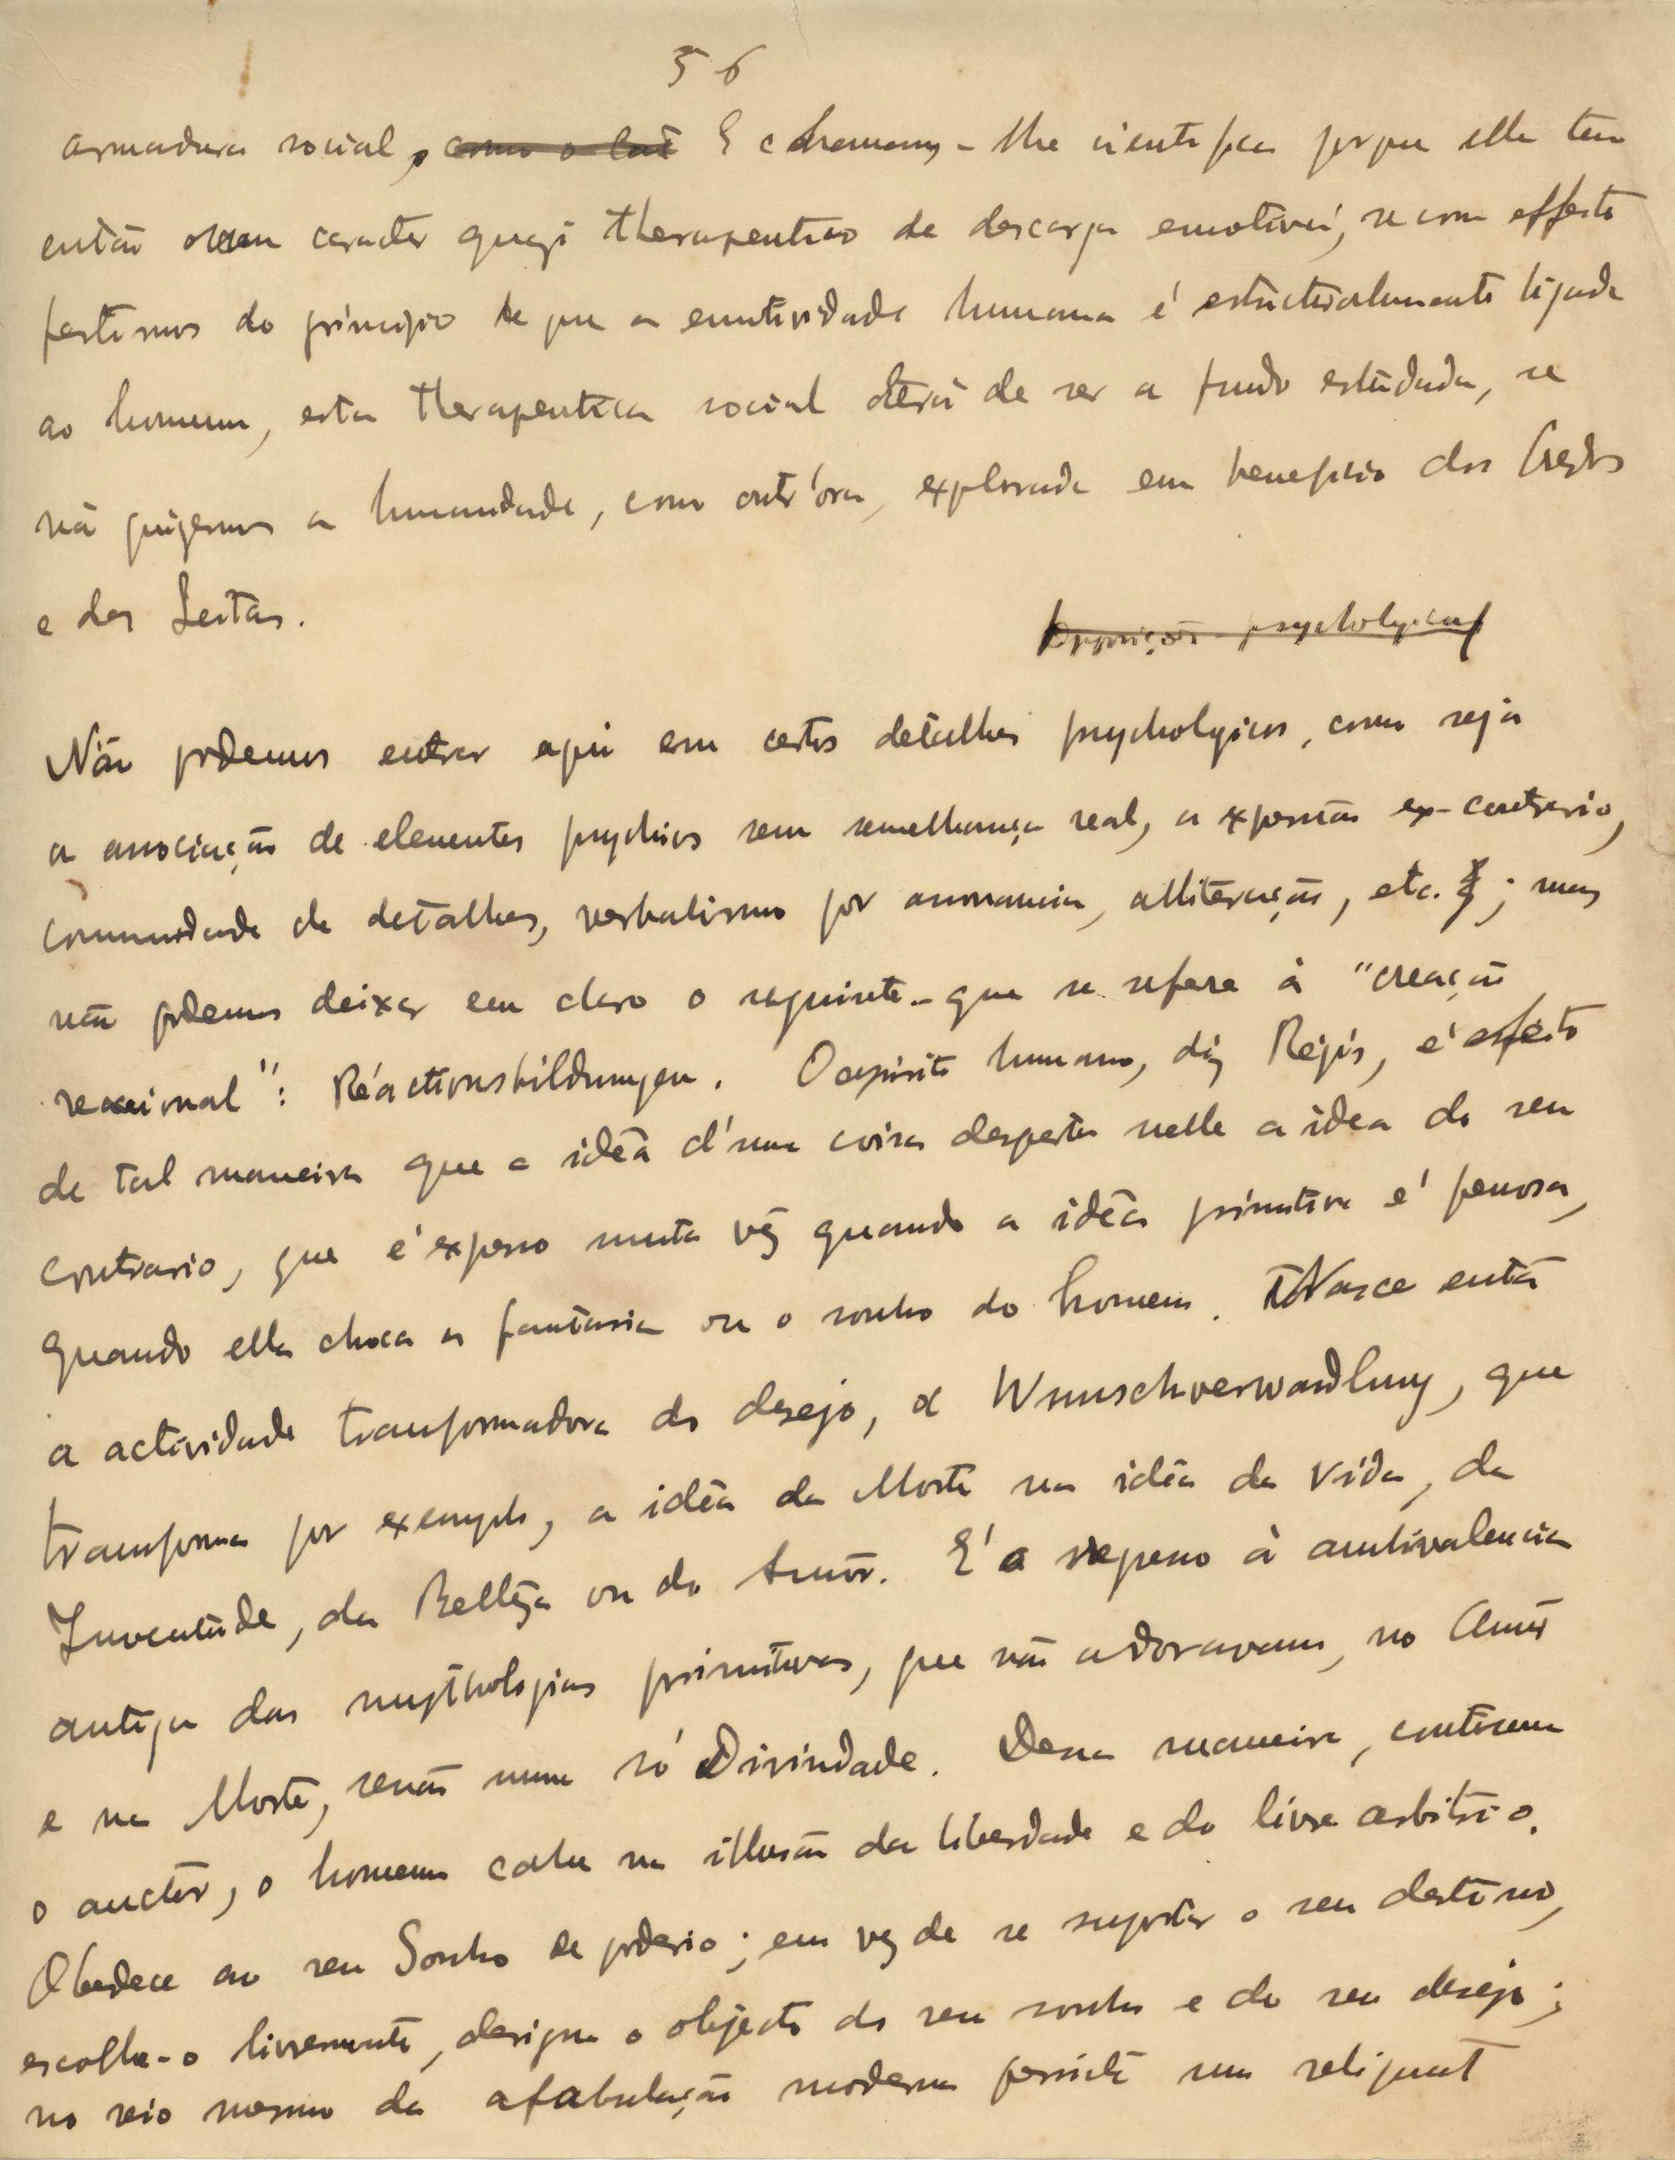 56
armadura social, como o cat E chamamos-lhe scientifica porque ella tem
então um caracter quazi therapeutico de descarga emotiva, se com effeito
partimos do principio de que a emotividade humana é estructuralmente ligada
ao homem, esta therapeutica social terá de ser a fundo estudada, se
não quizermos a humanidade, como outr'ora, explorada em beneficio dos Credos
e das Seitas.
psychologicas
Não podemos entrar aqui em certos detalhes psychologicos, como seja
a associação de elementos psychicos sem semelhança real, a expressão ex-contrario,
communidade de detalhes, verbalismo por assonancia, alliteração, etc.; mas
não podemos deixar em claro o seguinte - que se refere à "creação
reaccional": Réactionsbildungen. O espirito humano, diz Régis, é feito
de tal maneira que a idéa d'uma coisa desperta nelle a idea do seu
contrario, que é expresso muita vêz quando a idéa primitiva é penosa,
quando ella choca a fantasia ou o sonho do homem. Nasce então
a actividade transformadora do desejo, a Wunschverwandlung, que
transforma por exemplo, a idéa da Morte na idéa da Vida, da
Juventude, da Bellêza ou do Amôr. É o regresso à ambivalencia
antiga das mythologias primitivas, que não adoravam, no Amôr
e na Morte, senão uma só Divindade. Dessa maneira, continua
o auctor, o homem cahe na illusão da liberdade e do livre arbitrio.
Obedece ao seu Sonho de poderio; em vez de se suportar o seu destino,
escolhe-o livremente, designa o objecto do seu sonho e do seu desejo;
no seio mesmo da afabulação moderna persiste um reliquat